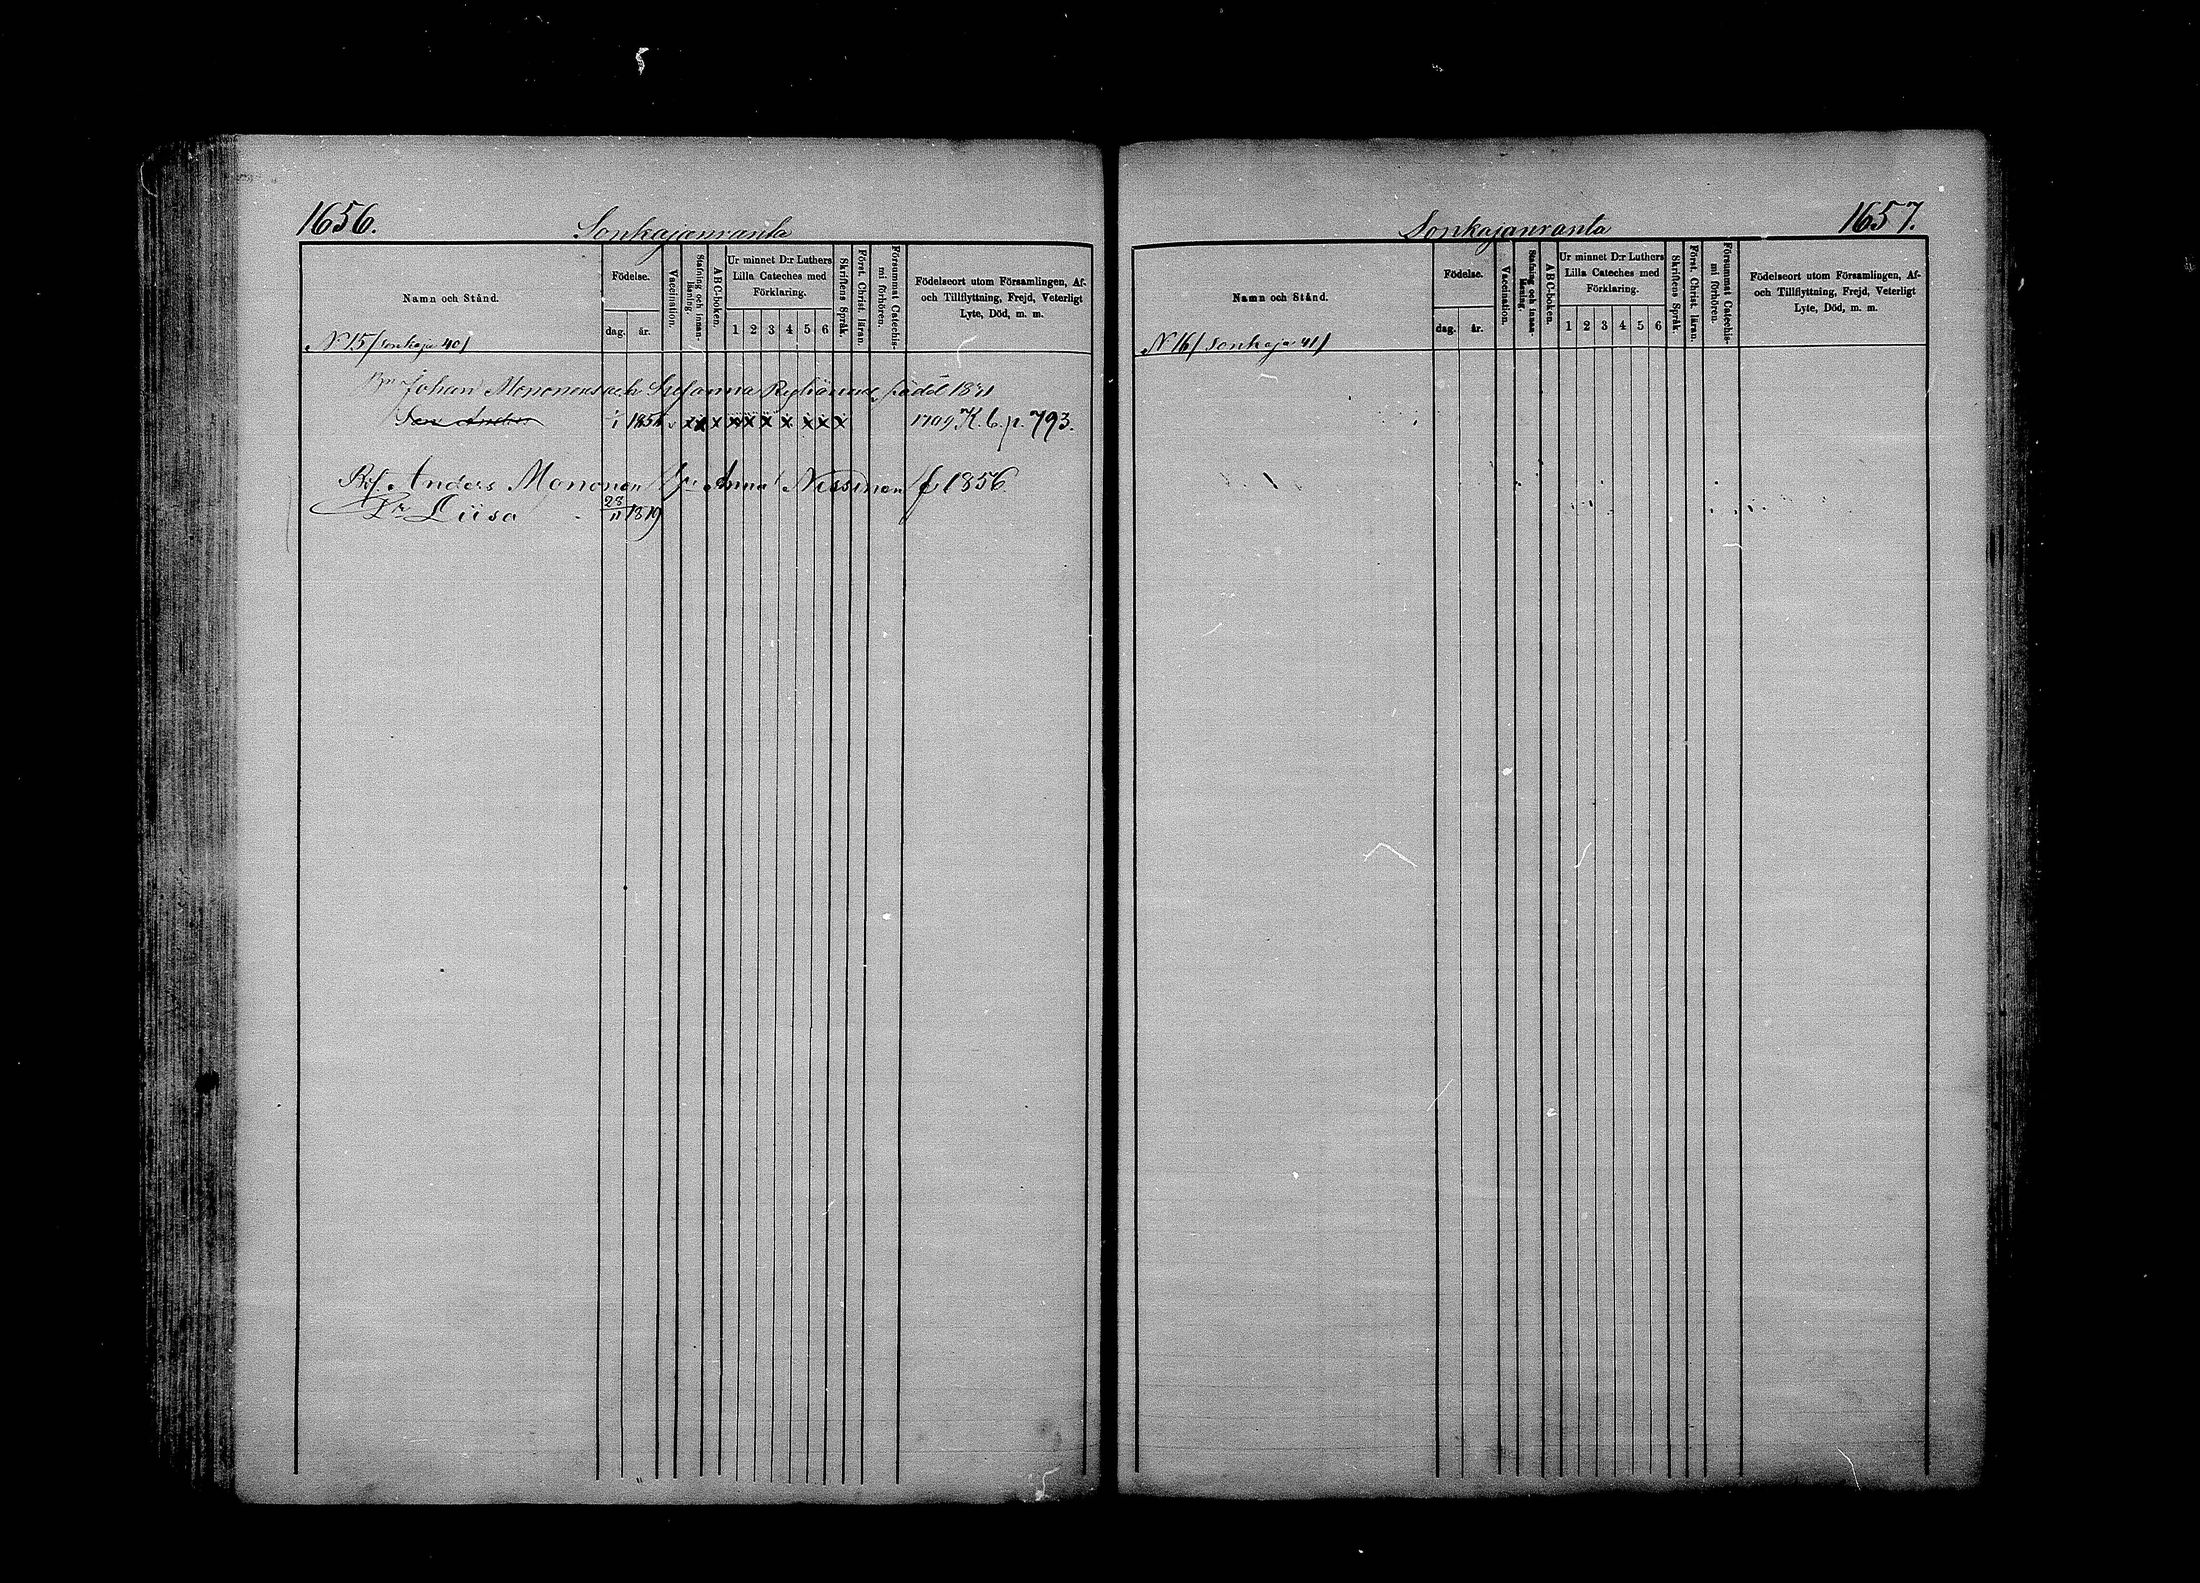 1656.
Sonkajanranta
Namn och Stånd.
Födelse.
dag.
år.
Vaccination.
Stafning och innan-
läsning.
ABC-boken.
Ur minnet D:r Luthers
Lilla Cateches med
Förklaring.
1 2 3 4 5 6
Skriftens Språk.
Först. Christ. läran.
Försummat Catechis-
mi förhören.
Födelseort utom Församlingen, Af-
och Tillflyttning, Frejd, Veterligt
Lyte, Död, m. m.
N 15/ Sonkaja 40/
Johan Mononens och Susanna
Son 1/1 1851 x x x x x x x x x x K. b. p. 793.
Anders Monon Anna Nissinen f 1856
Dr Liisa 28/11 1819
Sonkajanranta
1657.
Namn och Stånd.
Födelse.
dag.
år.
Vaccination.
Stafning och innan-
läsning.
ABC-boken.
Ur minnet D:r Luthers
Lilla Cateches med
Förklaring.
1 2 3 4 5 6
Skriftens Språk.
Först. Christ. läran.
Försummat Catechis-
mi förhören.
Födelseort utom Församlingen, Af-
och Tillflyttning, Frejd, Veterligt
Lyte, Död, m. m.
N 16/ Sonkaja 41/